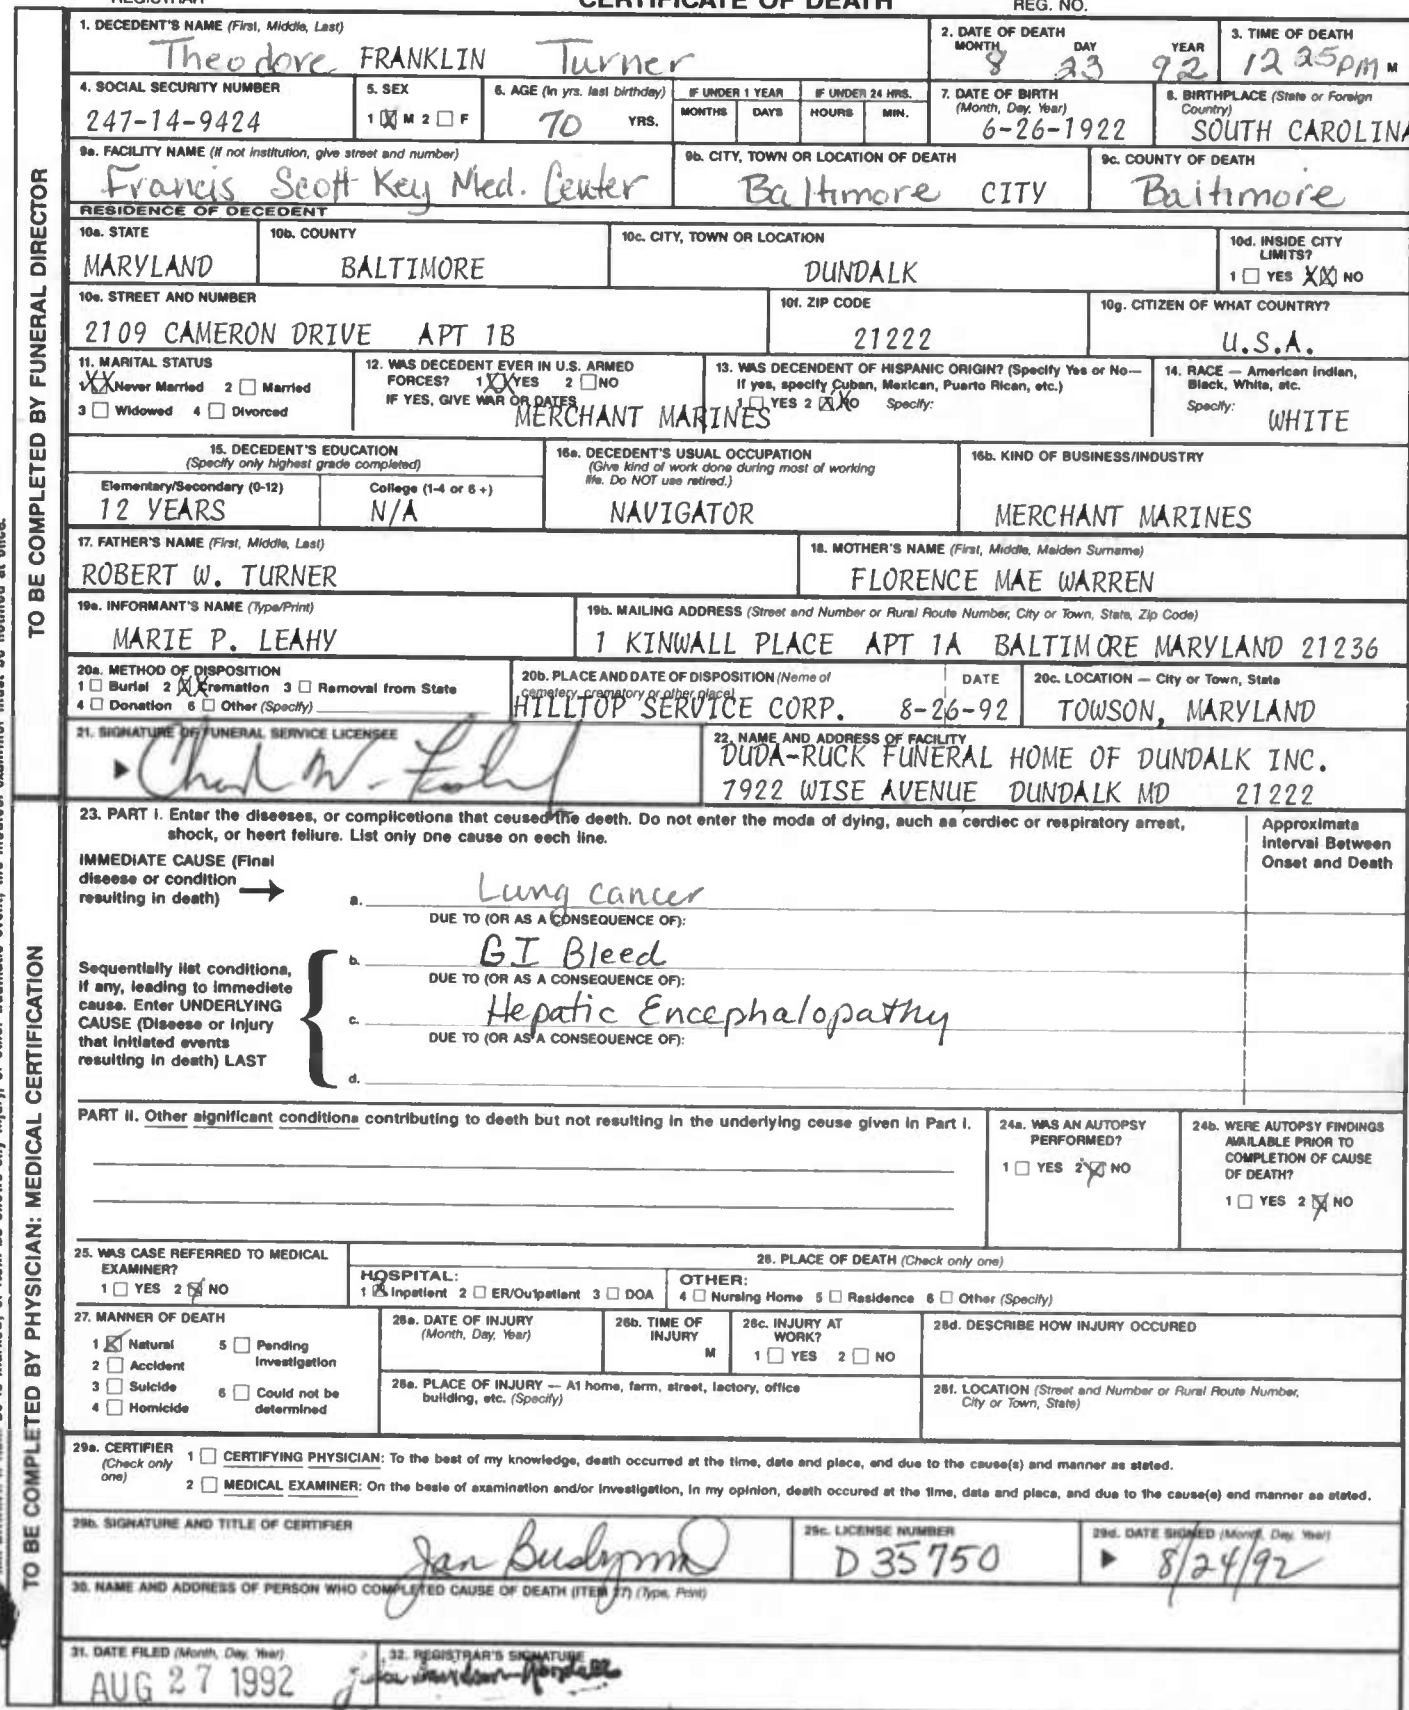 REGISTRAR CERTIFICATE OF DEATH REG. NO.
TO BE COMPLETED BY FUNERAL DIRECTOR
1. DECEDENT'S NAME (First, Middle, Last)
Theodore FRANKLIN Turner
2. DATE OF DEATH
MONTH DAY YEAR
8 23 92
3. TIME OF DEATH
12 25pm M
4. SOCIAL SECURITY NUMBER
247-14-9424
5. SEX
1 X M 2 F
6. AGE (In yrs. last birthday)
70 YRS.
IF UNDER 1 YEAR
MONTHS DAYS
IF UNDER 24 HRS.
HOURS MIN.
7. DATE OF BIRTH
(Month, Day, Year)
6-26-1922
8. BIRTHPLACE (State or Foreign
Country)
SOUTH CAROLINA
9a. FACILITY NAME (If not institution, give street and number)
Francis Scott Key Med. Center
9b. CITY, TOWN OR LOCATION OF DEATH
Baltimore CITY
9c. COUNTY OF DEATH
Baltimore
RESIDENCE OF DECEDENT
10a. STATE
MARYLAND
10b. COUNTY
BALTIMORE
10c. CITY, TOWN OR LOCATION
DUNDALK
10d. INSIDE CITY
LIMITS?
1 YES XX NO
10e. STREET AND NUMBER
2109 CAMERON DRIVE APT 1B
10f. ZIP CODE
21222
10g. CITIZEN OF WHAT COUNTRY?
U.S.A.
11. MARITAL STATUS
1 XX Never Married 2 Married
3 Widowed 4 Divorced
12. WAS DECEDENT EVER IN U.S. ARMED
FORCES? 1 XX YES 2 NO
IF YES, GIVE WAR OR DATES
MERCHANT MARINES
13. WAS DECENDENT OF HISPANIC ORIGIN? (Specify Yes or No—
If yes, specify Cuban, Mexican, Puerto Rican, etc.)
1 YES 2 XX NO Specify:
14. RACE — American Indian,
Black, White, etc.
Specify:
WHITE
15. DECEDENT'S EDUCATION
(Specify only highest grade completed)
Elementary/Secondary (0-12) College (1-4 or 5+)
12 YEARS N/A
16a. DECEDENT'S USUAL OCCUPATION
(Give kind of work done during most of working
life. Do NOT use retired.)
NAVIGATOR
16b. KIND OF BUSINESS/INDUSTRY
MERCHANT MARINES
17. FATHER'S NAME (First, Middle, Last)
ROBERT W. TURNER
18. MOTHER'S NAME (First, Middle, Maiden Surname)
FLORENCE MAE WARREN
19a. INFORMANT'S NAME (Type/Print)
MARIE P. LEAHY
19b. MAILING ADDRESS (Street and Number or Rural Route Number, City or Town, State, Zip Code)
1 KINWALL PLACE APT 1A BALTIMORE MARYLAND 21236
20a. METHOD OF DISPOSITION
1 Burial 2 XX Cremation 3 Removal from State
4 Donation 5 Other (Specify)
20b. PLACE AND DATE OF DISPOSITION (Name of
cemetery, crematory or other place) DATE
HILLTOP SERVICE CORP. 8-26-92
20c. LOCATION — City or Town, State
TOWSON, MARYLAND
21. SIGNATURE OF FUNERAL SERVICE LICENSEE
22. NAME AND ADDRESS OF FACILITY
DUDA-RUCK FUNERAL HOME OF DUNDALK INC.
7922 WISE AVENUE DUNDALK MD 21222
TO BE COMPLETED BY PHYSICIAN: MEDICAL CERTIFICATION
23. PART I. Enter the diseases, or complications that caused the death. Do not enter the mode of dying, such as cardiac or respiratory arrest,
shock, or heart failure. List only one cause on each line.
Approximate
Interval Between
Onset and Death
IMMEDIATE CAUSE (Final
disease or condition
resulting in death)
a. Lung cancer
DUE TO (OR AS A CONSEQUENCE OF):
Sequentially list conditions,
if any, leading to immediate
cause. Enter UNDERLYING
CAUSE (Disease or injury
that initiated events
resulting in death) LAST
b. GI Bleed
DUE TO (OR AS A CONSEQUENCE OF):
c. Hepatic Encephalopathy
DUE TO (OR AS A CONSEQUENCE OF):
d.
PART II. Other significant conditions contributing to death but not resulting in the underlying cause given in Part I.
24a. WAS AN AUTOPSY
PERFORMED?
1 YES 2 X NO
24b. WERE AUTOPSY FINDINGS
AVAILABLE PRIOR TO
COMPLETION OF CAUSE
OF DEATH?
1 YES 2 X NO
25. WAS CASE REFERRED TO MEDICAL
EXAMINER?
1 YES 2 X NO
26. PLACE OF DEATH (Check only one)
HOSPITAL:
1 X Inpatient 2 ER/Outpatient 3 DOA
OTHER:
4 Nursing Home 5 Residence 6 Other (Specify)
27. MANNER OF DEATH
1 X Natural 5 Pending
Investigation
2 Accident
3 Suicide 6 Could not be
determined
4 Homicide
28a. DATE OF INJURY
(Month, Day, Year)
28b. TIME OF
INJURY
M
28c. INJURY AT
WORK?
1 YES 2 NO
28d. DESCRIBE HOW INJURY OCCURED
28e. PLACE OF INJURY — At home, farm, street, factory, office
building, etc. (Specify)
28f. LOCATION (Street and Number or Rural Route Number,
City or Town, State)
29a. CERTIFIER
(Check only
one)
1 CERTIFYING PHYSICIAN: To the best of my knowledge, death occurred at the time, date and place, and due to the cause(s) and manner as stated.
2 MEDICAL EXAMINER: On the basis of examination and/or investigation, in my opinion, death occured at the time, date and place, and due to the cause(s) and manner as stated.
29b. SIGNATURE AND TITLE OF CERTIFIER
Jan
29c. LICENSE NUMBER
D 35750
29d. DATE SIGNED (Month, Day, Year)
8/24/92
30. NAME AND ADDRESS OF PERSON WHO COMPLETED CAUSE OF DEATH (ITEM 27) (Type, Print)
31. DATE FILED (Month, Day, Year)
AUG 27 1992
32. REGISTRAR'S SIGNATURE